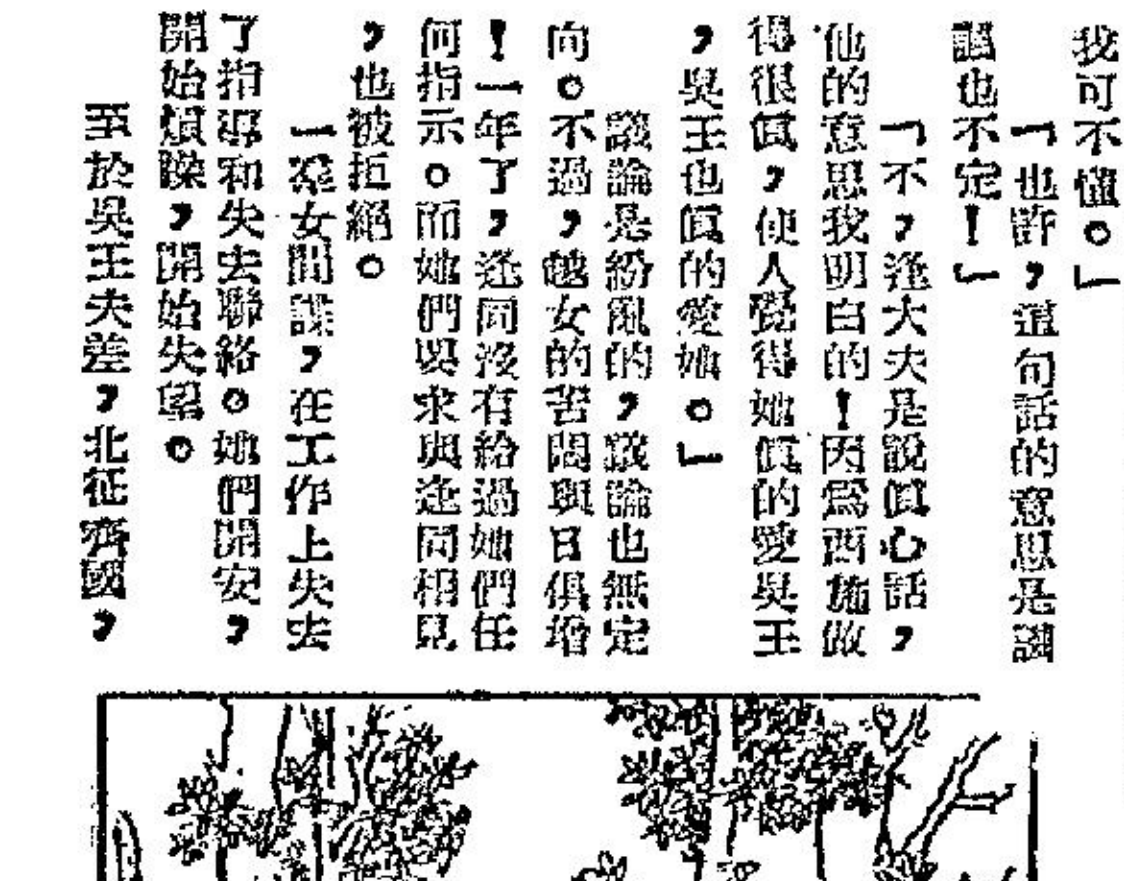 我可不懂。」
「也許,這句話的意思是諷
諷也不定!」
「不,逢大夫是說眞心話,
他的意思我明白的!因爲西施做
得很眞,使人覺得她眞的愛吳王
,吳王也眞的愛她。」
議論是紛亂的,議論也無定
向。不過,越女的苦悶與日俱增
!一年了,逢同沒有給過她們任
何指示。而她們要求與逢同相見
,也被拒絕。
一羣女間諜,在工作上失去
了指導和失去聯絡。她們開安,
開始煩躁,開始失望。
至於吳王夫差,北征齊國,